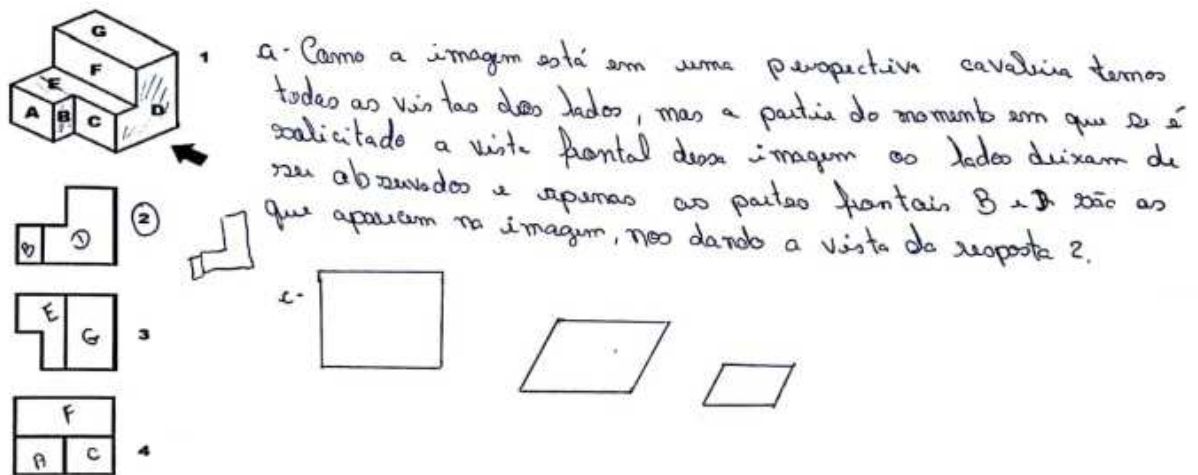 G
F
E
A B C D
1
a- Como a imagem está em uma perspectiva cavaleira temos
todas as vistas dos lados, mas a partir do momento em que se é
solicitado a vista frontal dessa imagem os lados deixam de
ser observados e apenas as partes frontais B e D são as
que aparecem na imagem, nos dando a vista da resposta 2.
B D 2
c-
E G 3
F
A C 4